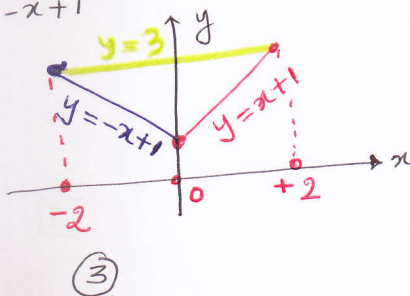 -x+1
y
y = 3
y = -x+1
y = x+1
x
-2
0
+2
3